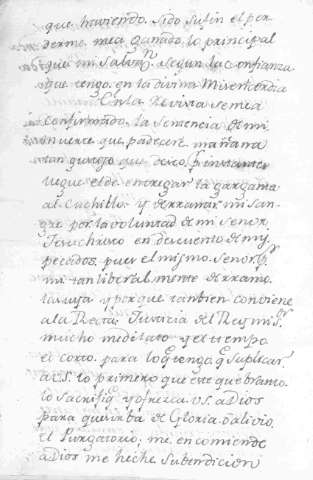 que haviendo sido su fin el per
derme, mea ganado lo principal
que mi Salvon. Segun la confianza
que tengo en la divina Misericordia
En la Revista se mea
confirmado la sentencia de mi
muerte que padecere mañana
tan gustoso que deseo instantes
llegue el de entregar la garganta
al Cuchillo y derramar mi san
gre por la voluntad de mi Señor
Jesuchristo en descuento de mis
pecados, pues el mismo Señor pr
mi tan liberal mente derramo
la suya y porque tambien conviene
a la Recta Justicia del Rey mi Sr
mucho meditado y el tiempo
es corto para lo q tengo q suplicar
a V.S. lo primero que este que bramo
lo sacrifiq y ofrezca V.S. a Dios
para que sirba de Gloria o alivio
el Purgatorio, me encomiende
a Dios me heche su bendicion